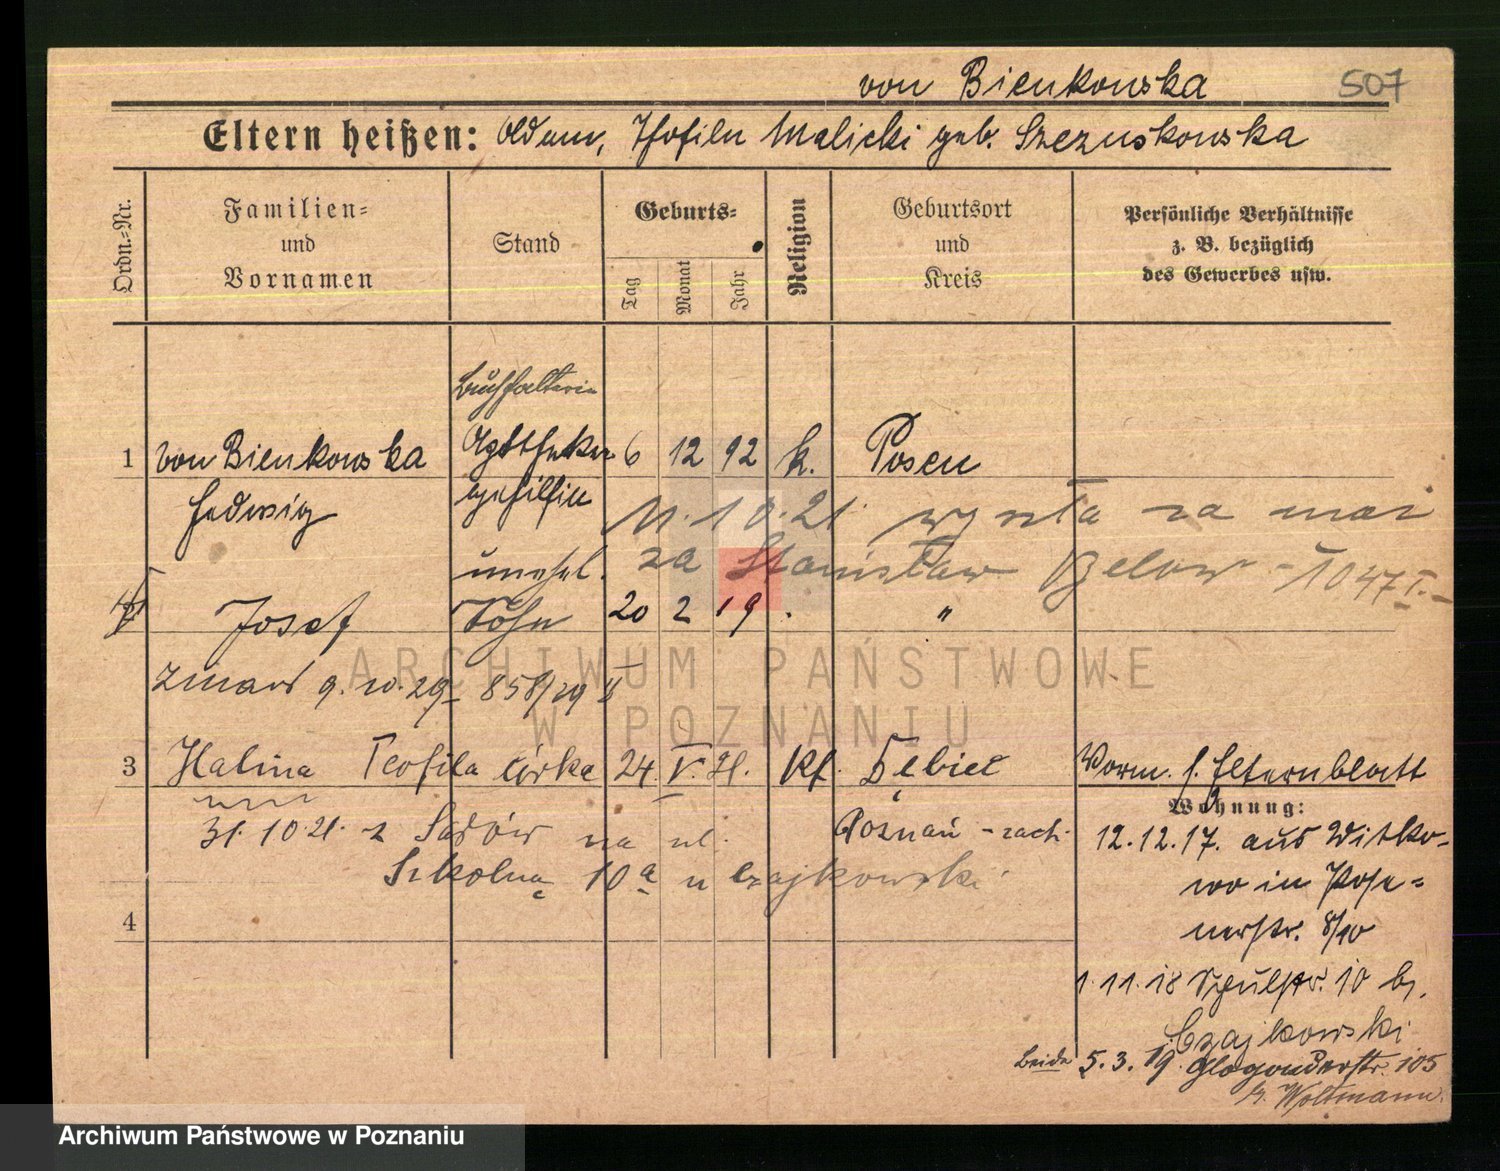 von Bienkowska 507
Eltern heißen: Adam, Theofila Malicki geb. Szczuskowska
Ordn.-Nr.
Familien-
und
Vornamen
Stand
Geburts-
Tag
Monat
Jahr
Religion
Geburtsort
und
Kreis
Persönliche Verhältnisse
z. B. bezüglich
des Gewerbes usw.
Buchhalterin
1 von Bienkowska Apotheken 6 12 92 k. Posen
Hedwig gehilfin
11.10.21. wyszła za mąż
unehel. za Stanisław Below - 1047 I.
2 Josef Sohn 20 2 19 . "
zmarł 9. 10. 29 858/29 II
3 Halina Teofila córka 24 V. 21. kt. Dębiec Vorm. s. Elternblatt
Wohnung:
31. 10. 21. z Sadów na ul. Poznań - zach.
Szkolna 10a u Czajkowski
12.12.17. aus Witko-
wo in Pose-
nerstr. 8/10
4
1.11.18 Schulstr. 10 b.
Czajkowski
Beide 5.3.19. Glogauerstr. 105
b. Woltmann
ARCHIWUM PAŃSTWOWE
W POZNANIU
Archiwum Państwowe w Poznaniu